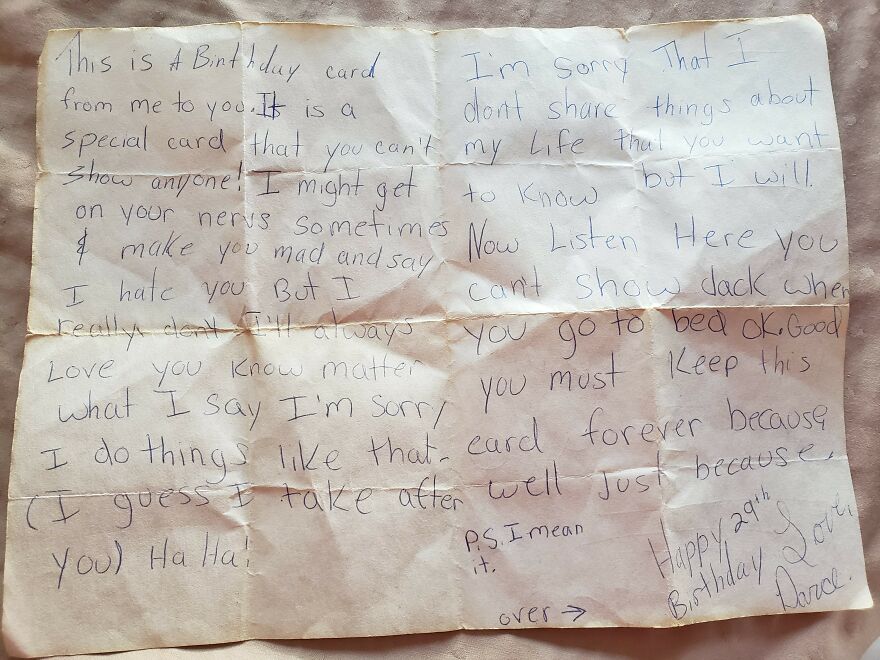 This is A Birthday card
from me to you. It is a
special card that you can't
show anyone! I might get
on your nervs sometimes
& make you mad and say
I hate you But I
really dont I'll always
Love you know matter
what I say I'm sorry
I do things like that.
(I guess I take after
you) Ha Ha!
I'm sorry That I
dont share things about
my Life that you want
to know but I will.
Now Listen Here you
can't show dack when
you go to bed ok. Good
you must Keep this
card forever because
well just because.
P.S. I mean
it.
over →
Happy 29th
Birthday
Love,